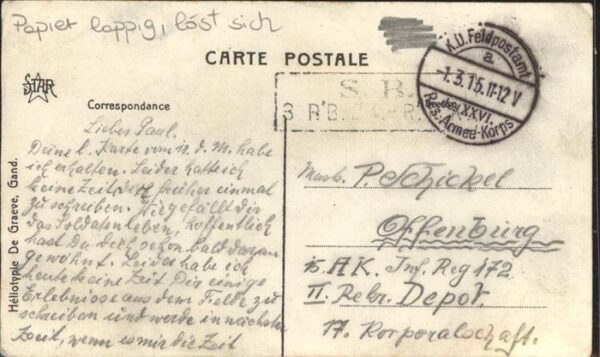 Papier lappig, löst sich
CARTE POSTALE
STAR
K.D. Feldpostamt
a
-1.3.15.11-12V
des XXVI.
Res.-Armee-Korps
S. B.
3 R'B.
Correspondance
Lieber Paul.
Deine l. Karte vom 18. d. M. habe
ich erhalten. Leider hatte ich
keine Zeit dich früher einmal
zu schreiben. Wie gefällt dir
das Soldatenleben, hoffentlich
hast Du dich schon bald daran
gewöhnt. Leider habe ich
heute keine Zeit Dir einige
Erlebnisse aus dem Felde zu
schreiben und werde in nächster
Zeit, wenn es mir die Zeit
Musk. P. Schickel
Offenburg
15 A.K. Inf. Reg 172
II. Rekr. Depot
17. Korporalschaft.
Héliotypie De Graeve, Gand.